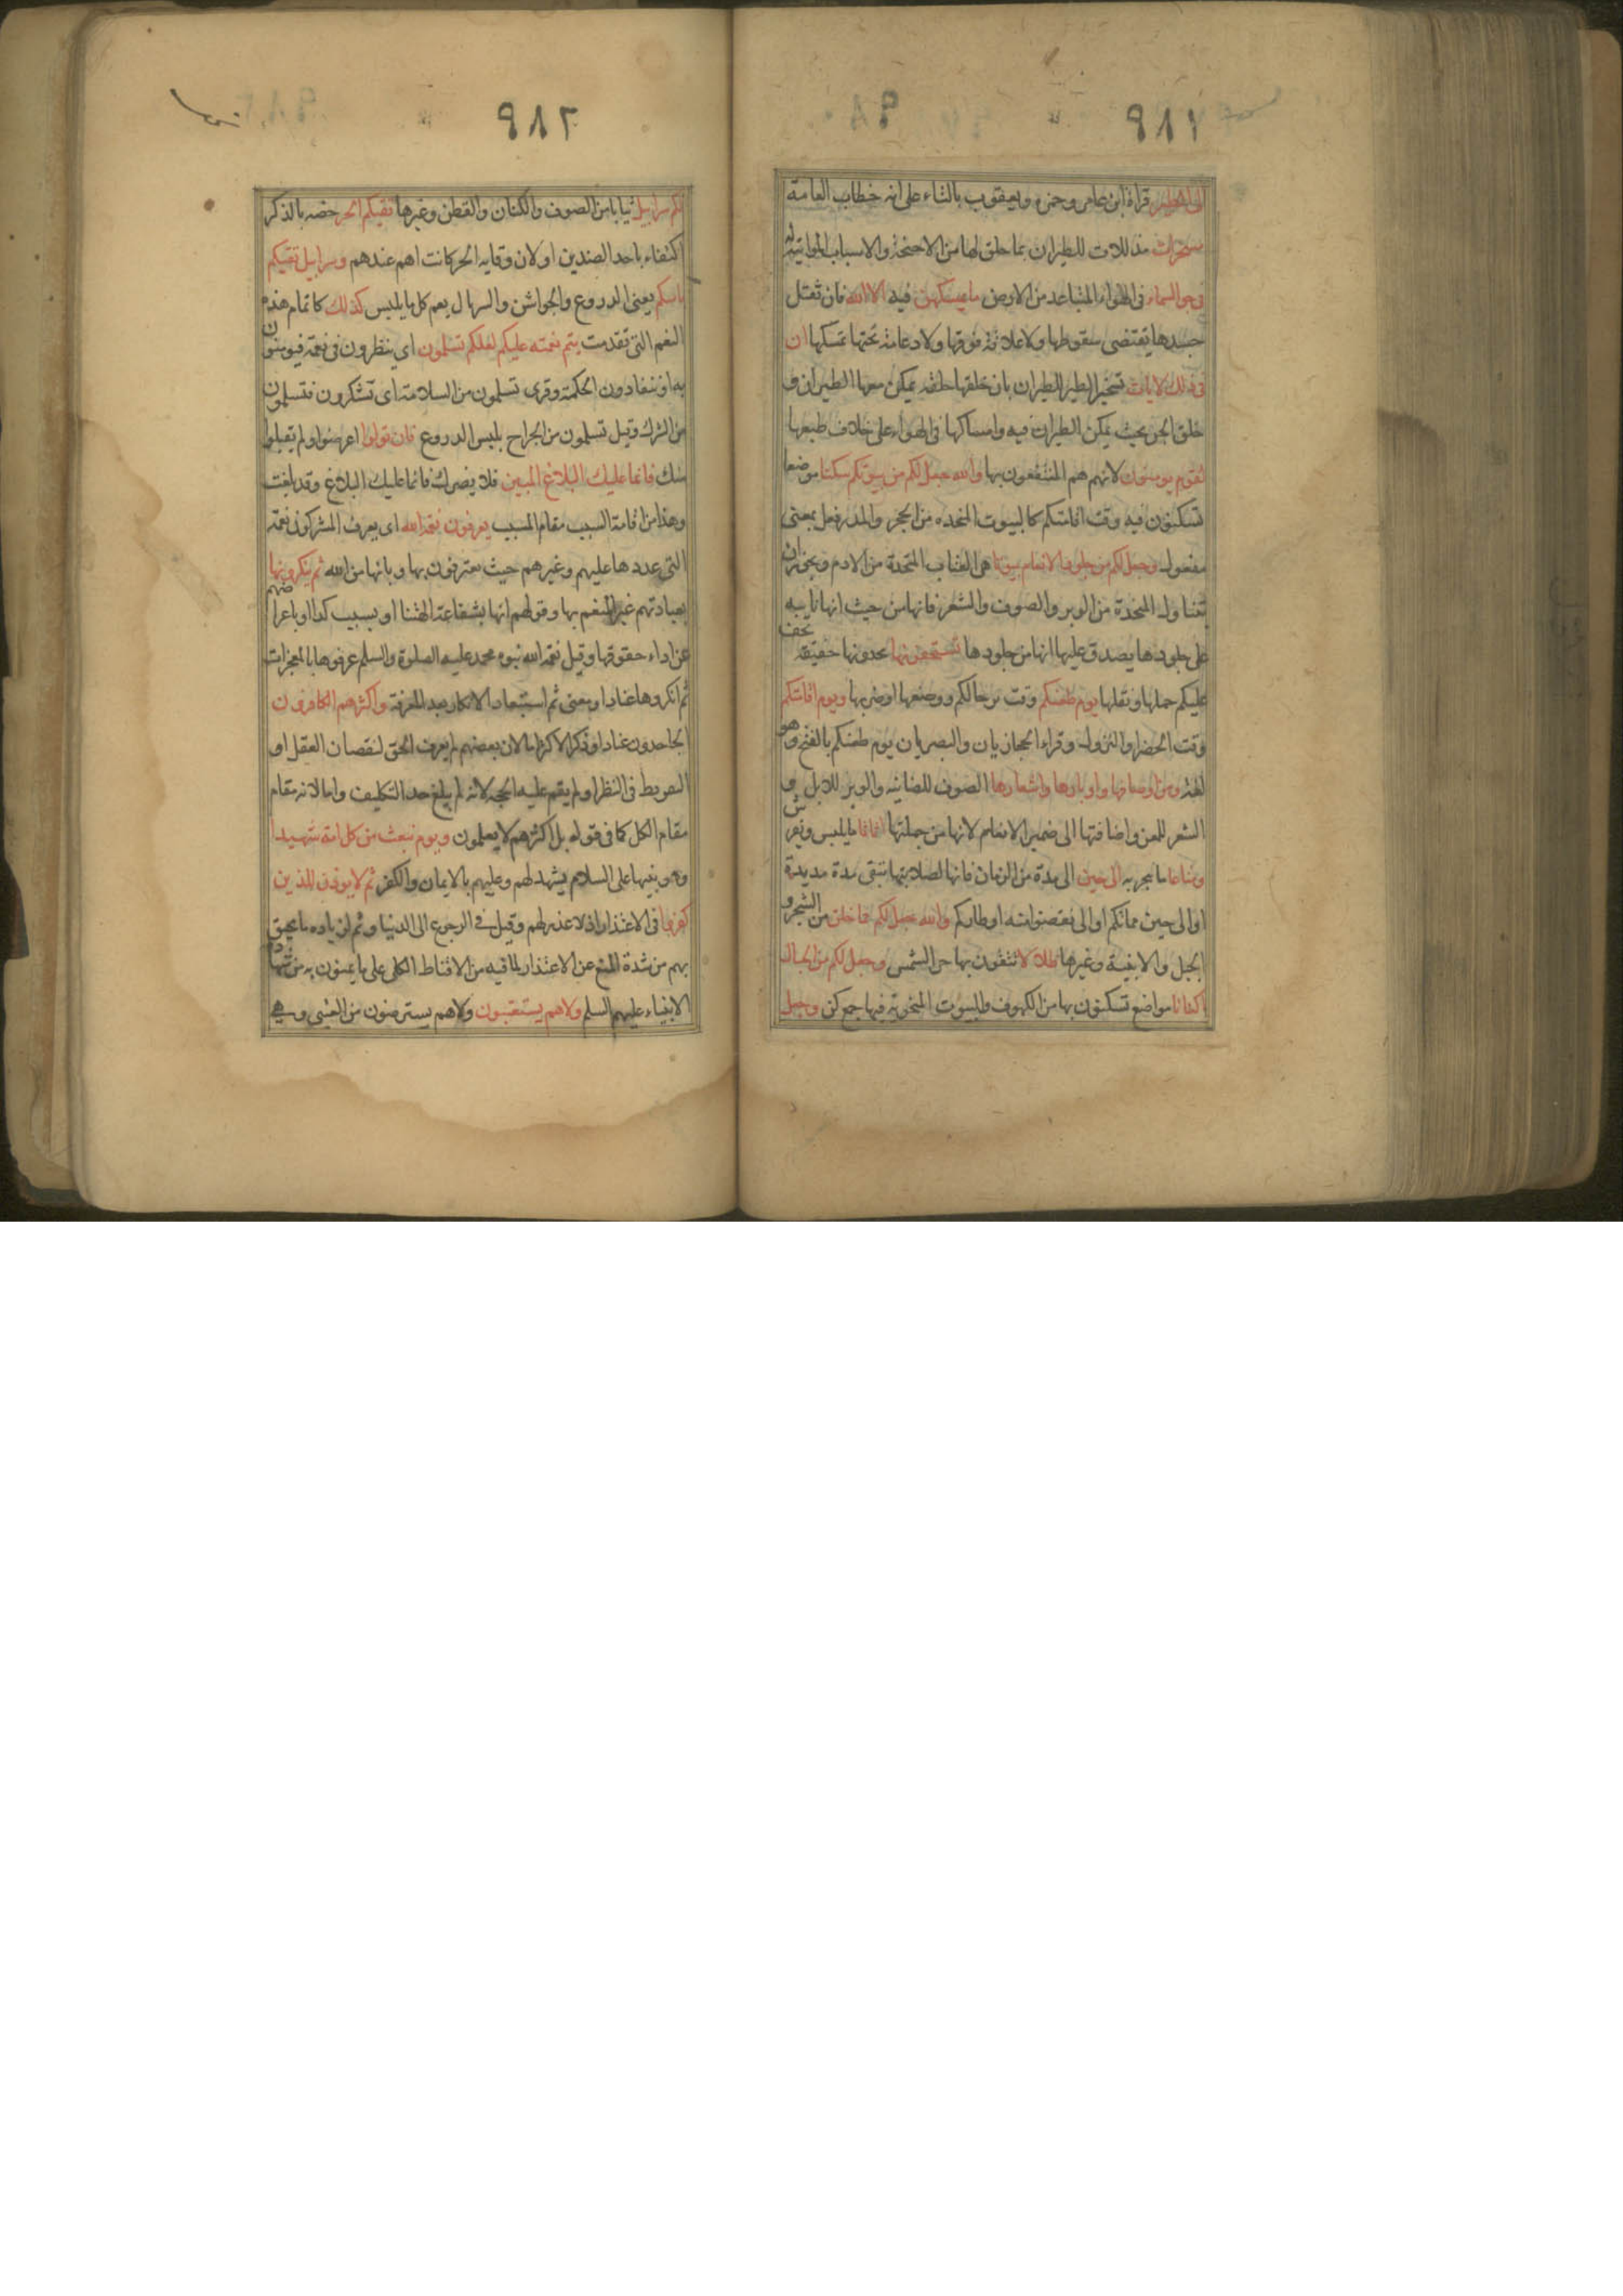 ٩٨١
الى الطير قراة ابن عامر وحمزة ويعقوب بالتاء على انه خطاب العامة
مسخرات مذللات للطيران بما خلق لها من الاجنحة والاسباب المواتية له
فى جو السماء فى الهواء المتباعد من الارض ما يمسكهن فيه الا الله فان ثقل
جسدها يقتضى سقوطها ولا علاقة فوقها ولا دعامة تحتها تمسكها ان
فى ذلك لايات تسخير الطير للطيران بان خلقها خلقة يمكن معها الطيران و
خلق الجو بحيث يمكن الطيران فيه وامساكها فى الهواء على خلاف طبعها
لقوم يومنون لانهم هم المنتفعون بها والله جعل لكم من بيوتكم سكنا موضعا
تسكنون فيه وقت اقامتكم كالبيوت المتخذه من الحجر والمدر فعل بمعنى
مفعول وجعل لكم من جلود الانعام بيوتا هى القباب المتخذة من الادم ويجوز ان
تتناول المتخذة من الوبر والصوف والشعر فانها من حيث انها نابتة
على جلودها يصدق عليها انها من جلودها تستخفونها تجدونها خفيفة يخف
عليكم حملها ونقلها يوم ظعنكم وقت ترحالكم ووضعها او ضربها ويوم اقامتكم
وقت الحضر او النزول وقراء الحجازيان والبصريان يوم ظعنكم بالفتح وهو
لغة ومن اصوافها واوبارها واشعارها الصوف للضائنه والوبر للابل و
الشعر للمعز واضافتها الى ضمير الانعام لانها من جملتها اثاثا ما يلبس ويفرش
ومتاعا ما يتجر به الى حين الى مدة من الزمان فانها لصلابتها تبقى مدة مديدة
او الى حين مماتكم او الى ان تقضوا منه اوطاركم والله جعل لكم مما خلق من الشجر و
الجبل والابنية وغيرها ظلالا تتقون بها حر الشمس وجعل لكم من الجبال
اكنانا مواضع تسكنون بها من الكهوف والبيوت المنحوتة فيها جمع كن وجعل
٩٨٢
لكم سرابيل ثيابا من الصوف والكتان والقطن وغيرها تقيكم الحر خصه بالذكر
اكتفاء باحد الضدين او لان وقاية الحر كانت اهم عندهم وسرابيل تقيكم
باسكم يعنى الدروع والجواشن والسربال يعم كل ما يلبس كذلك كاتمام هذه
النعم التى تقدمت يتم نعمته عليكم لعلكم تسلمون اى ينظرون فى نعمة فيومنون
به او ينقادون لحكمه وقرى تسلمون من السلامة اى تشكرون فتسلمون
من الشرك وقيل تسلمون من الجراح بلبس الدروع فان تولوا اعرضوا ولم يقبلوا
منك فانما عليك البلاغ المبين فلا يضرك فانما عليك البلاغ وقد بلغت
وهذا من اقامة السبب مقام المسبب يعرفون نعمة الله اى يعرف المشركون نعمة
التى عددها عليهم وغيرهم حيث معترفون بها وبانها من الله ثم ينكرونها
بعبادتهم غير المنعم بها وقولهم انها بشفاعة الهتنا او بسبب كذا او باعراضهم
عن اداء حقوقها وقيل نعمة الله نبوه محمد عليه الصلوة والسلم عرفوها بالمعجزات
ثم انكروها عنادا ومعنى ثم استبعاد الانكار بعد المعرفة واكثرهم الكافرون
الجاحدون عنادا وذكر الاكثر اما لان بعضهم لم يعرف الحق لنقصان العقل او
التفريط فى النظر او لم يقم عليه الحجه لانه لم يبلغ حد التكليف واما لانه مقام
مقام الكل كما فى قوله بل اكثرهم لا يعلمون ويوم نبعث من كل امة شهيدا
وهو نبيها على السلام يشهد لهم وعليهم بالايمان والكفر ثم لا يوذن للذين
كفروا فى الاعتذار اذ لا عذر لهم وقيل فى الرجوع الى الدنيا وثم لزياده ما يحيق
بهم من شدة المنع عن الاعتذار لما فيه من الاقناط الكلى على ما يمنون به من شهادة
الانبياء عليهم السلم ولا هم يستعتبون ولا هم يسترضون من العتبى وهى